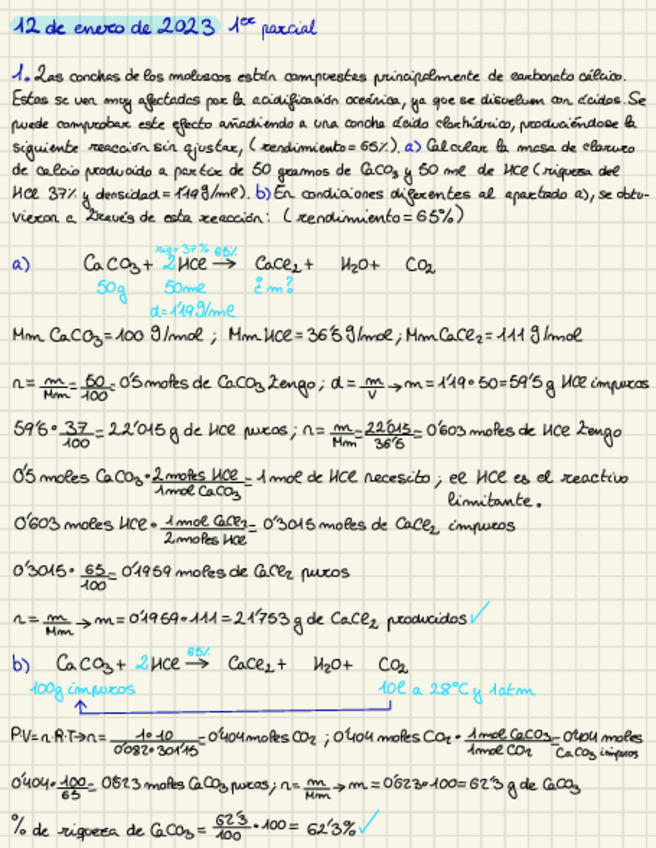 12 de enero de 2023 1er parcial
1. Las conchas de los moluscos están compuestas principalmente de carbonato cálcico.
Estas se ven muy afectadas por la acidificación oceánica, ya que se disuelven con ácidos. Se
puede comprobar este efecto añadiendo a una concha ácido clorhídrico, produciéndose la
siguiente reacción sin ajustar, (rendimiento=65%). a) Calcular la masa de cloruro
de calcio producido a partir de 50 gramos de CaCO3 y 50 ml de HCl (riqueza del
HCl 37% y densidad=1'19g/ml). b) En condiciones diferentes al apartado a), se obtu-
vieron a través de esta reacción: (rendimiento=65%)
riq=37% 65%
a) CaCO3 + 2HCl → CaCl2 + H2O + CO2
50g 50ml ¿m?
d=1'19g/ml
Mm CaCO3=100 g/mol ; Mm HCl=36'5g/mol; Mm CaCl2=111 g/mol
n= m/Mm = 50/100 = 0'5 moles de CaCO3 tengo; d= m/V → m=1'19·50=59'5 g HCl impuros
59'5· 37/100 = 22'015 g de HCl puros; n= m/Mm = 22'015/36'5 = 0'603 moles de HCl tengo
0'5 moles CaCO3 · 2 moles HCl/1mol CaCO3 = 1 mol de HCl necesito; el HCl es el reactivo
limitante.
0'603 moles HCl · 1mol CaCl2/2 moles HCl = 0'3015 moles de CaCl2 impuros
0'3015· 65/100 = 0'1959 moles de CaCl2 puros
n= m/Mm → m=0'1959·111=21'753 g de CaCl2 producidos ✓
65%
b) CaCO3 + 2HCl → CaCl2 + H2O + CO2
100g impuros 10l a 28°C y 1atm
P·V=n·R·T→n= 1·10/0'082·301'15 = 0'404 moles CO2 ; 0'404 moles CO2 · 1mol CaCO3/1mol CO2 = 0'404 moles
CaCO3 impuros
0'404· 100/65 = 0'623 moles CaCO3 puros; n= m/Mm → m=0'623·100=62'3 g de CaCO3
% de riqueza de CaCO3 = 62'3/100 ·100= 62'3% ✓